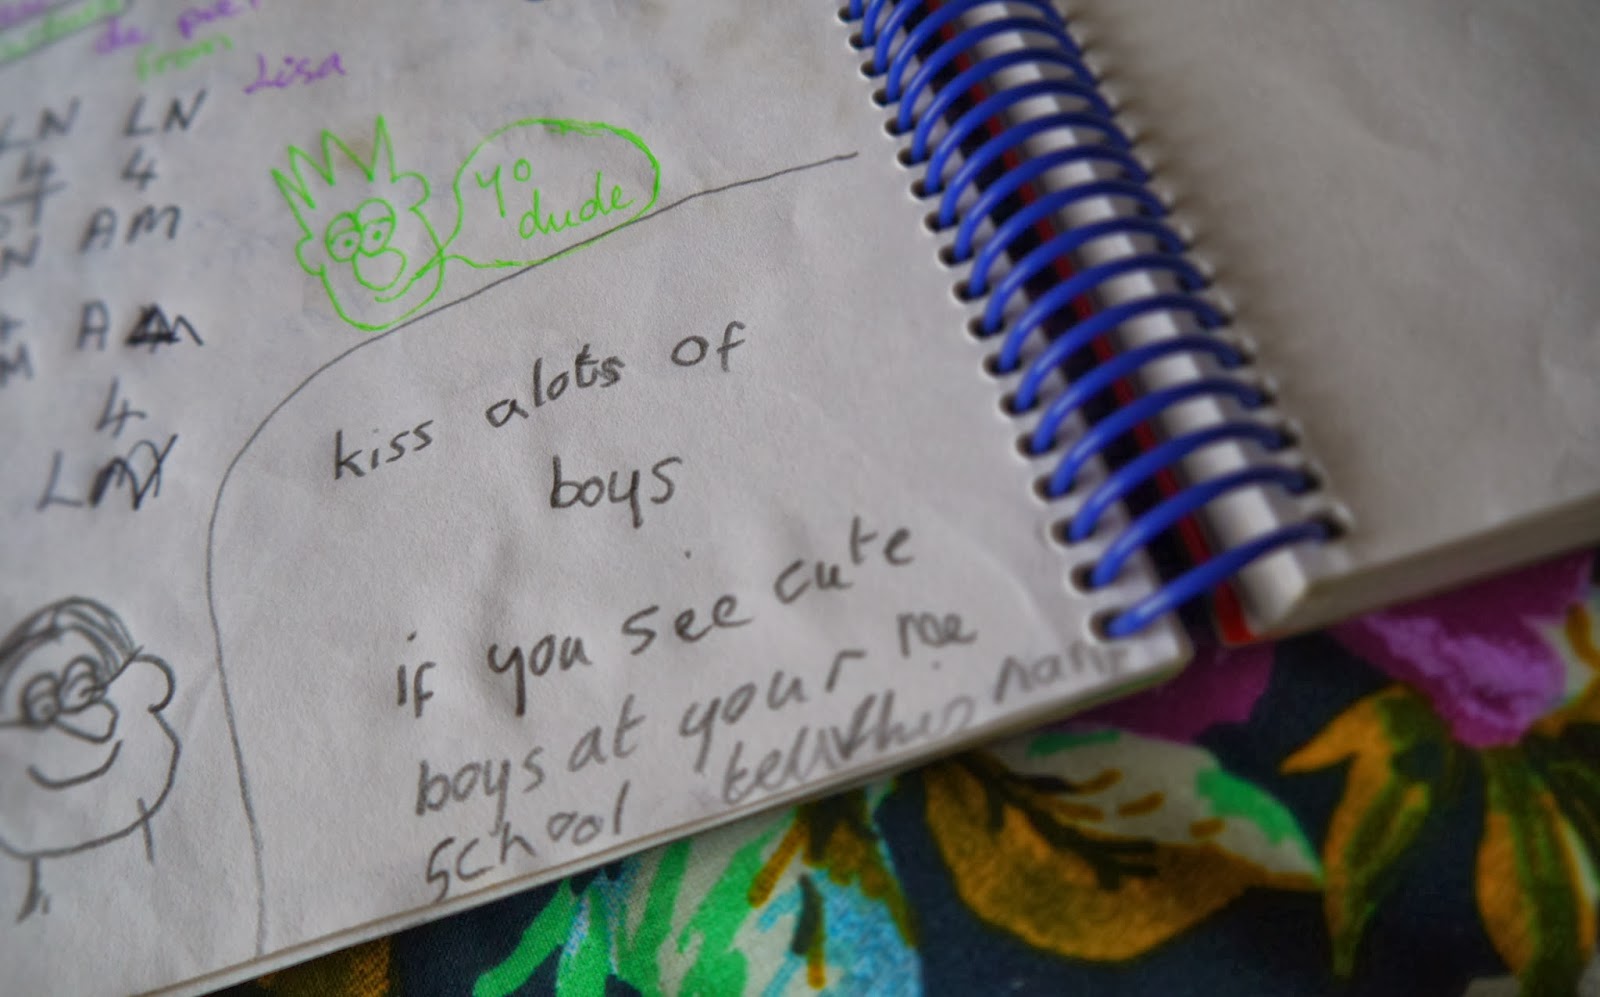 de
from
Lisa
LN LN
4 4
AM
yo
dude
A
4
kiss alots of
boys
if you see cute
boys at your me
school tell this name